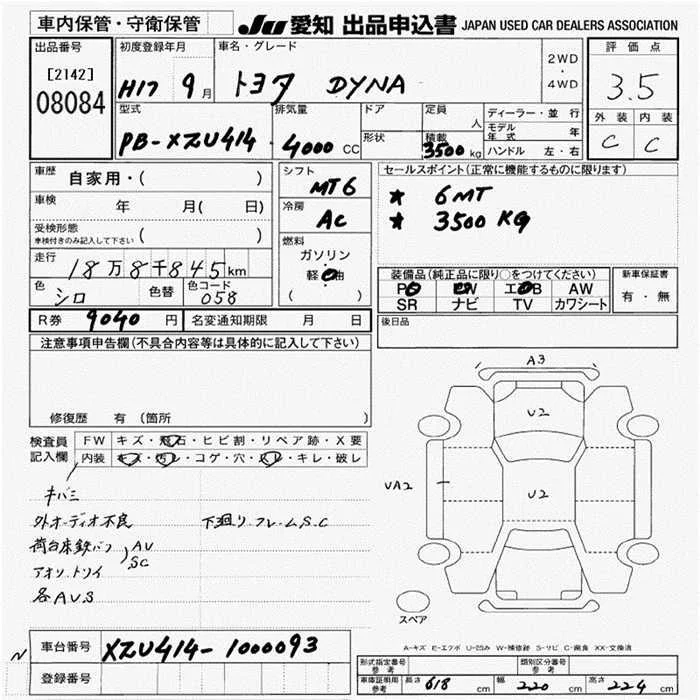 車内保管・守衛保管
JU 愛知 出品申込書 JAPAN USED CAR DEALERS ASSOCIATION
出品番号
[2142]
08084
初度登録年月
H17 9月
車名・グレード
トヨタ DYNA
2WD
・
4WD
評価点
3.5
外装 内装
C C
型式
PB-XZU414
排気量
4000 CC
ドア
形状
定員
人
積載
3500 kg
ディーラー・並行
モデル年式 年
ハンドル 左・右
車歴
自家用・( )
車検 年 月( 日)
受検形態
車検付きのみ記入して下さい ( )
走行
18万8千845km
色
シロ
色替
色コード
058
シフト
MT6
冷房
AC
燃料
ガソリン
軽油
( )
セールスポイント(正常に機能するものに限ります)
★ 6MT
★ 3500KG
装備品(純正品に限り○をつけてください)
PS PW エアB AW
SR ナビ TV カワシート
新車保証書
有・無
後日品
R券 9040 円 名変通知期限 月 日
注意事項申告欄(不具合内容等は具体的に記入して下さい)
修復歴 有 (箇所 )
検査員記入欄
FW キズ・飛石・ヒビ割・リペア跡・X要
内装 キズ・汚レ・コゲ・穴・スレ・キレ・破レ
キバミ
外オーディオ不良 下廻りフレームS.C
AV
SC
各AVS
A3
U2
UA2
U2
スペア
A-キズ E-エクボ U-凹み W-補修跡 S-サビ C-腐食 XX-交換済
N
車台番号 XZU414-1000093
登録番号
形式指定番号 参考
類別区分番号 参考
車庫証明用 参考 長さ 618 cm 幅 220 cm 高さ 224 cm